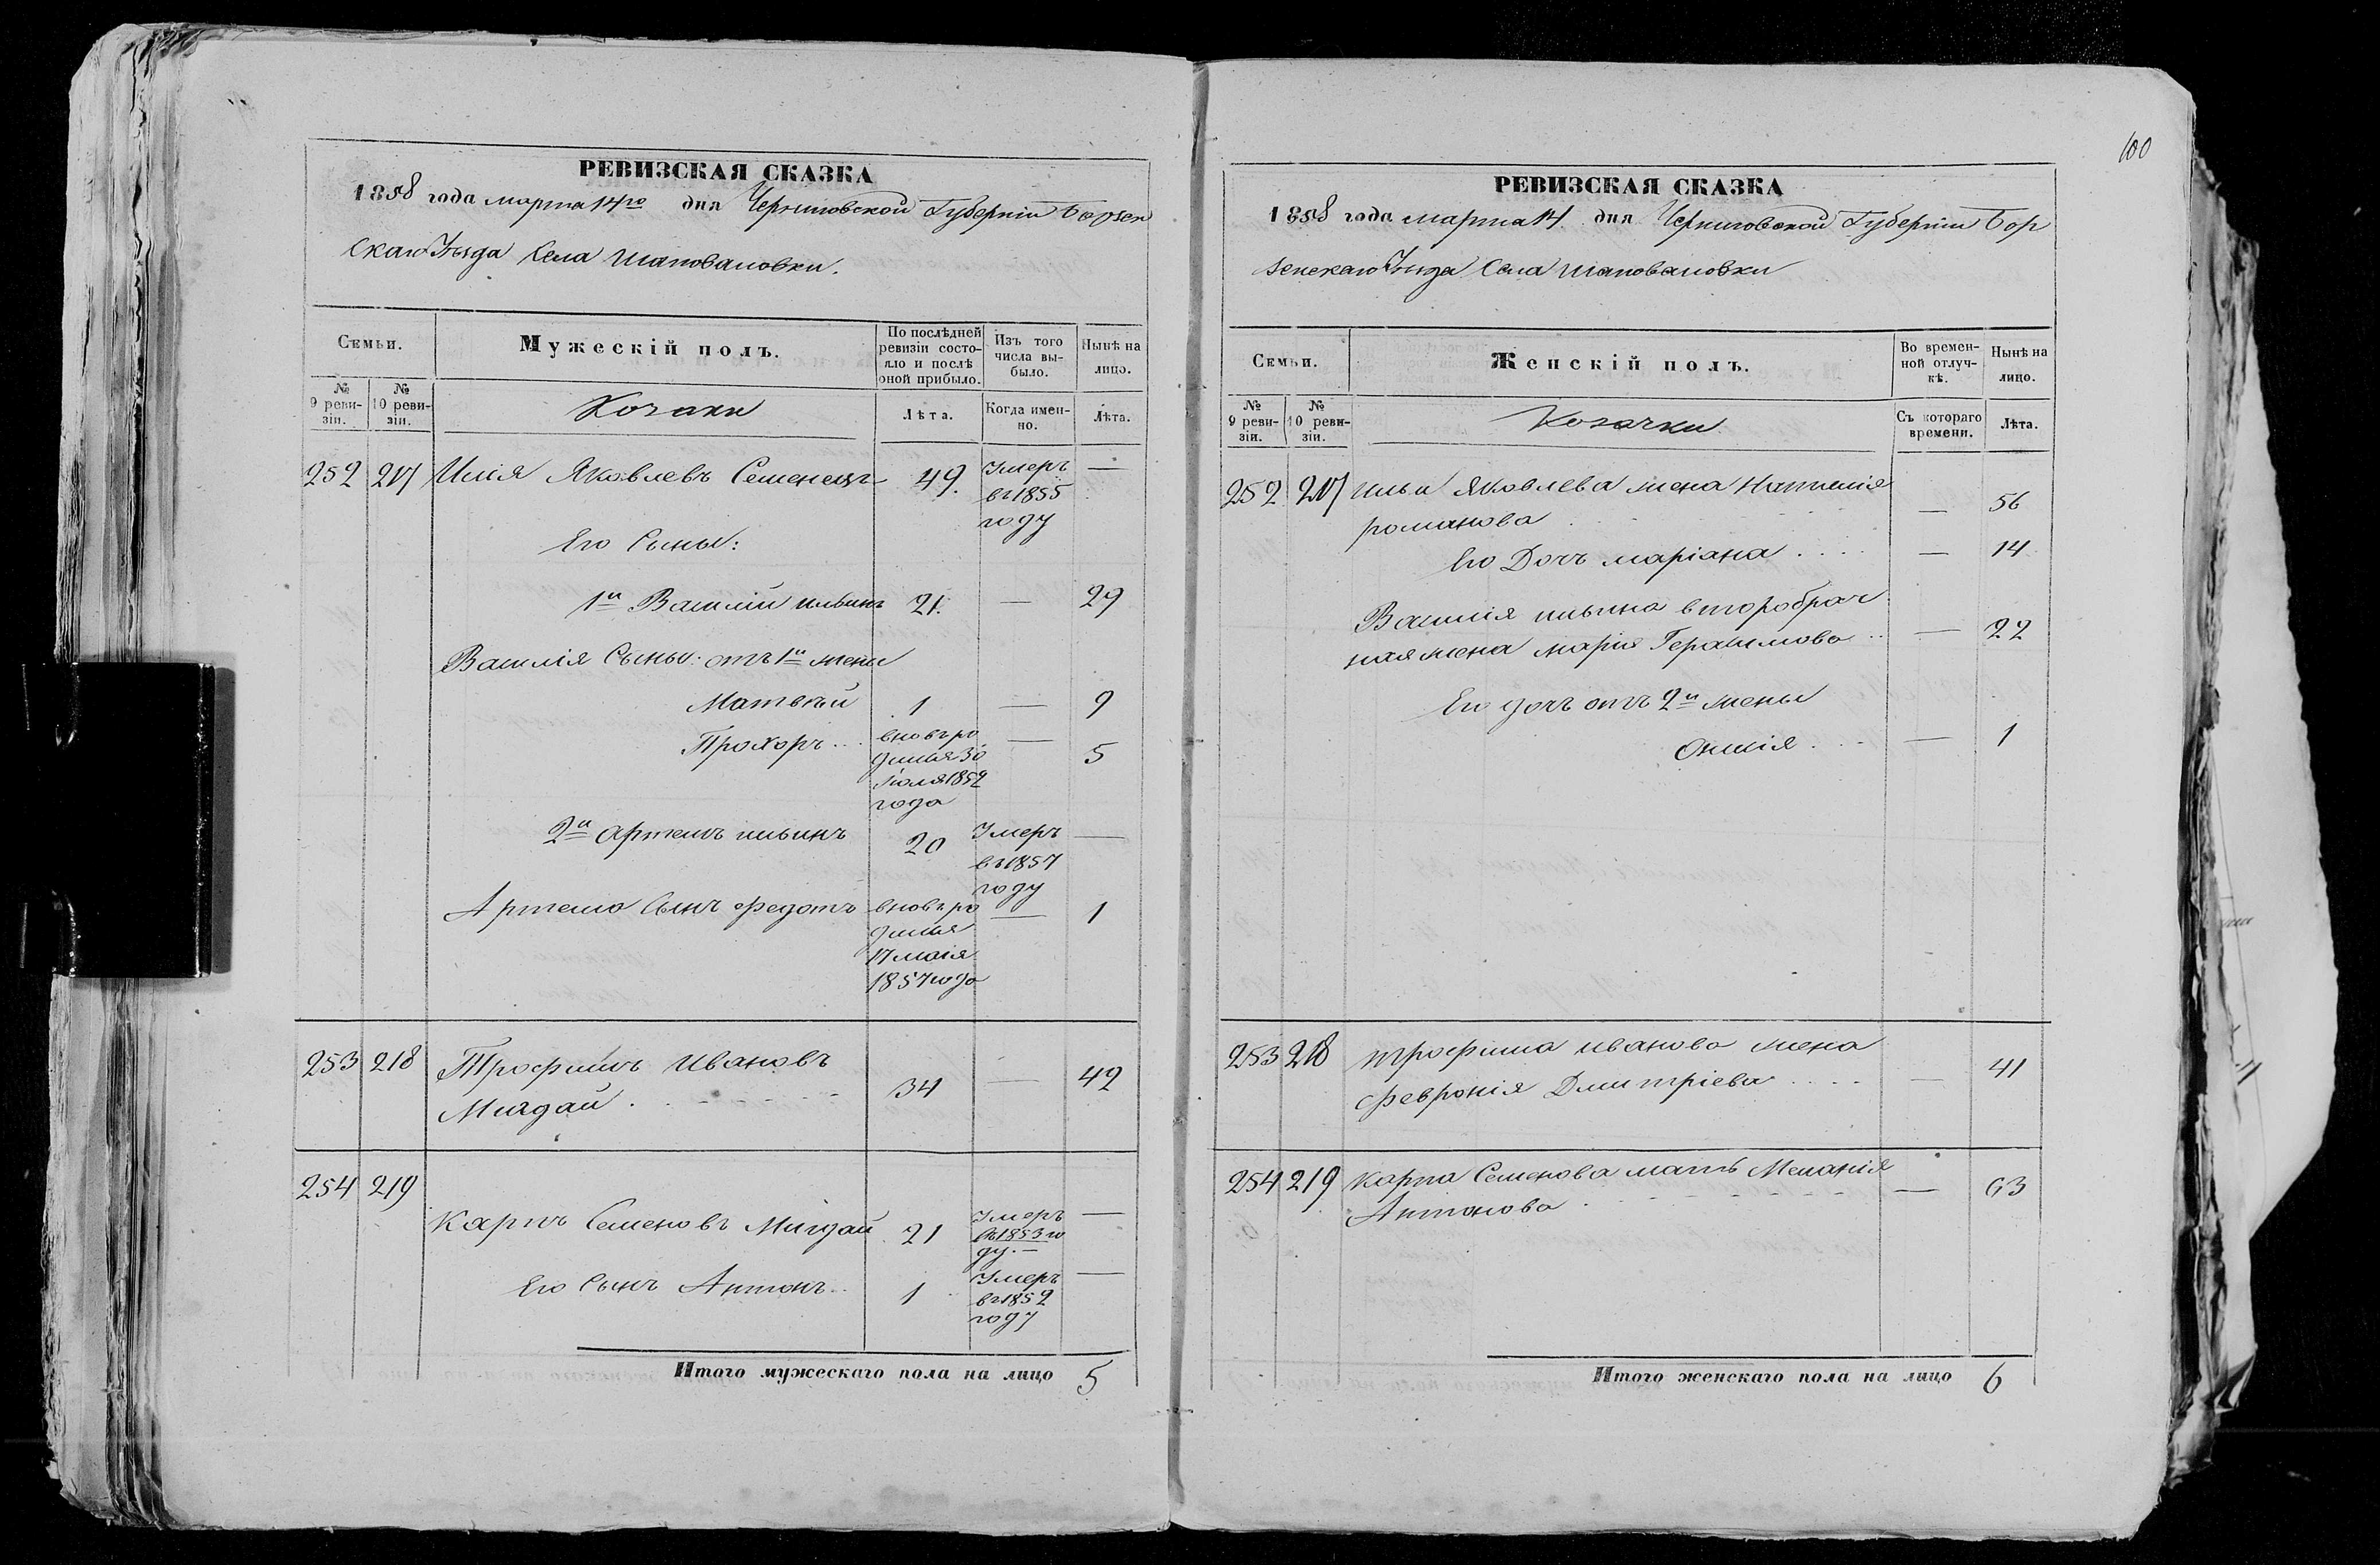 РЕВИЗСКАЯ СКАЗКА
1858 года марта 14го дня Черниговской Губерніи Борзен
скаго Уѣзда Села Шаповаловки.
Семьи.
Мужескій полъ.
По послѣдней ревизіи состояло и послѣ оной прибыло.
Изъ того числа выбыло.
Нынѣ на лицо.
№ 9 ревизіи.
№ 10 ревизіи.
Козаки
Лѣта.
Когда именно.
Лѣта.
252 217 Илія Яковлевъ Семенецъ 49. Умеръ —
въ 1855
году
Его Сыны:
1й Василій ильинъ 21. — 29
Василія Сыны: отъ 1й жены
Матвѣй 1 — 9
Прохоръ вновь ро — 5
дился 30
Іюля 1852
года
2й артемъ ильинъ 20 Умеръ —
въ 1857
году
Артема Сынъ Федотъ вновь ро — 1
дился
17 маія
1857 года
253 218 Трофимъ Ивановъ
Мигдай 34 — 42
254 219
Карпъ Семеновъ Мигдай 21 Умеръ —
въ 1853 го
ду.
Его Сынъ Антонъ 1 Умеръ —
въ 1852
году
Итого мужескаго пола на лицо 5
100
РЕВИЗСКАЯ СКАЗКА
1858 года марта 14. дня Черниговской Губерніи Бор
зенскаго Уѣзда Села Шаповаловки
Семьи.
Женскій полъ.
Во временной отлучкѣ.
Нынѣ на лицо.
№ 9 ревизіи.
№ 10 ревизіи.
Козачки
Съ котораго времени.
Лѣта.
252 217 Ильи Яковлева жена
романова — 56
Его Дочь маріана — 14
Василія ильина второбрач
ная жена марія Герасимова — 22
Его дочь отъ 2й жены
— 1
253 218 трофима иванова жена
февронія Дмитріева — 41
254 219 карпа Семенова мать Меланія
Антонова — 63
Итого женскаго пола на лицо 6